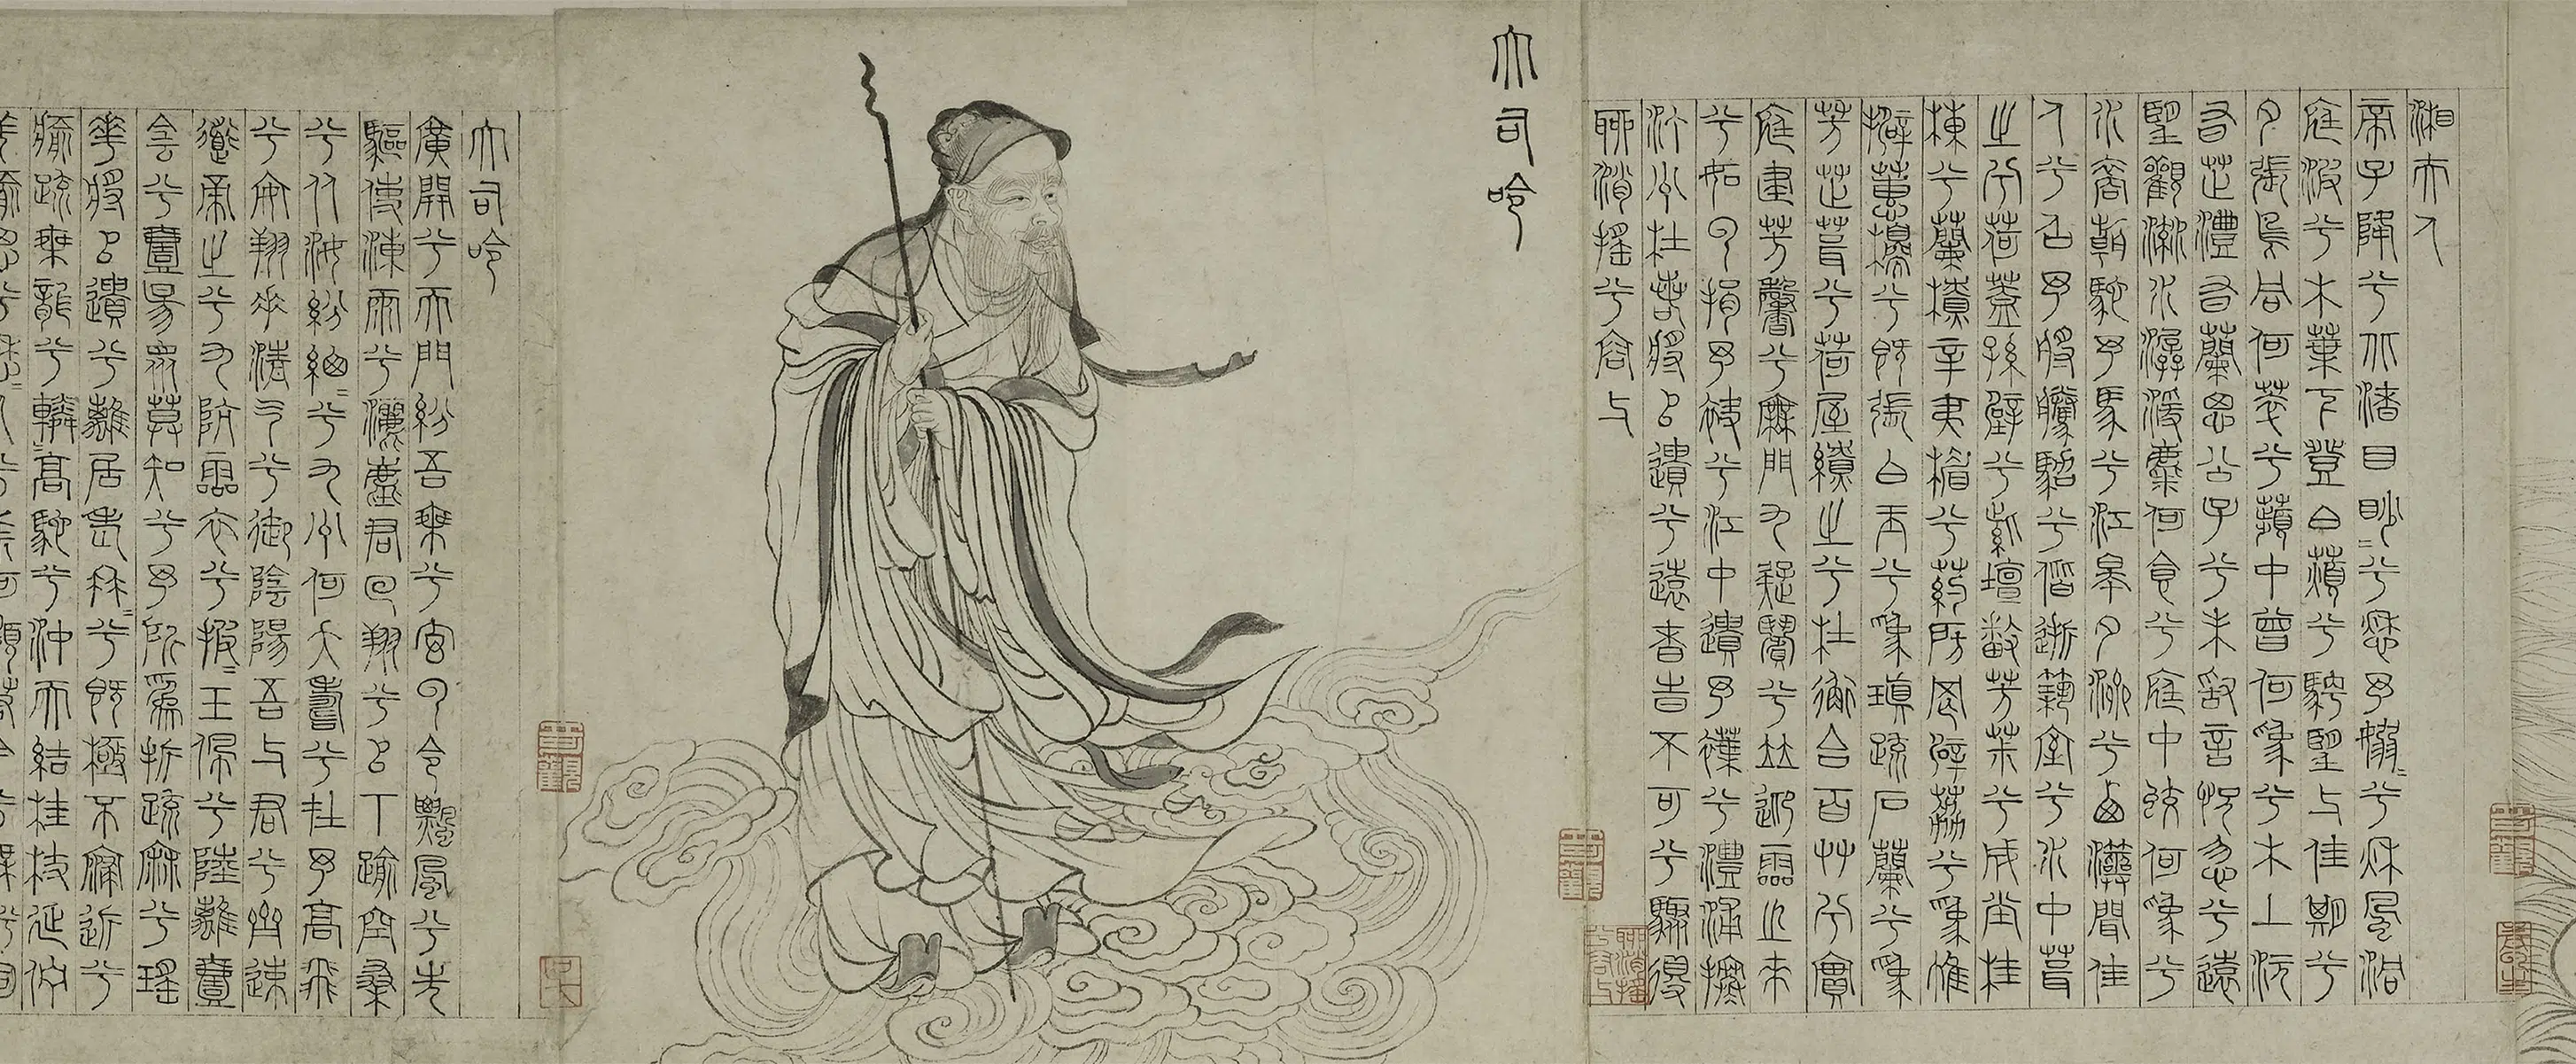 湘夫人
帝子降兮北渚目眇=兮愁予嫋=兮秋風洞
庭波兮木葉下登白薠兮騁望與佳期兮
夕張鳥何萃兮蘋中罾何為兮木上沅
有芷澧有蘭思公子兮未敢言怳忽兮遠
望觀流水潺湲麋何食兮庭中蛟何為兮
水裔朝馳予馬兮江皋夕濟兮西澨聞佳
人兮召予將騰駕兮偕逝築室兮水中葺
之兮荷蓋蓀壁兮紫壇播芳茮兮成堂桂
棟兮蘭橑辛夷楣兮葯房罔薜荔兮為帷
擗蕙櫋兮既張白玉兮為瑱疏石蘭兮為
芳芷葺兮荷屋繚之兮杜衡合百艸兮實
庭建芳馨兮廡門九疑繽兮竝迎靈之來
兮如雲捐予袂兮江中遺予褋兮澧浦搴
汀洲杜若將以遺兮遠者時不可兮驟得
聊逍遙兮容與
大司命
大司命
廣開兮天門紛吾乘兮玄雲令飄風兮先
驅使涷雨兮灑塵君回翔兮以下踰空桑
兮从汝紛總=兮九州何夭壽兮在予高飛
兮安翔乘清气兮御陰陽吾與君兮齊速
導帝之兮九阬靈衣兮披=玉佩兮陸離壹
陰兮壹陽眾莫知兮予所為折疏麻兮瑤
華將以遺兮離居老冉=兮既極不寖近兮
愈疏乘龍兮轔=高馳兮沖天結桂枝延佇